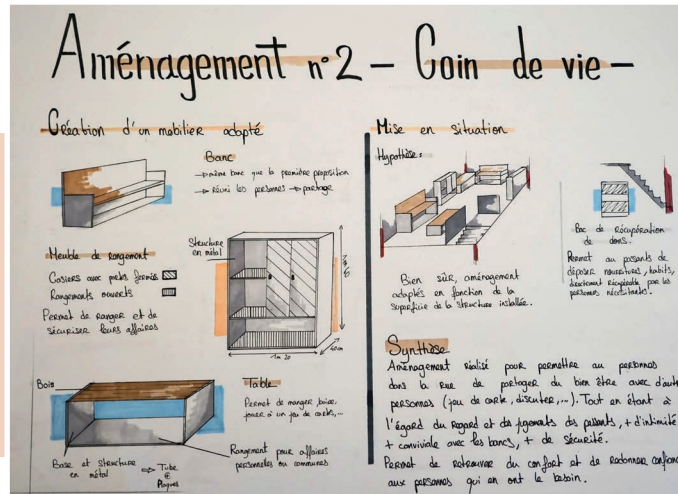 Aménagement n°2 - Coin de vie -
Création d'un mobilier adapté
Banc
même banc que la première proposition
réuni les personnes → partage
Meuble de rangement
Casiers avec portes fermées
Rangements ouverts
Permet de ranger et de
sécuriser leurs affaires
Structure
en métal
1m 20
40cm
Bois
Table
Permet de manger, boire,
jouer à un jeu de carte,...
Base et structure
en métal
→ Tube
@
Plaques
Rangement pour affaires
personnelles ou communes
Mise en situation
Hypothèse :
Bien sûr, aménagement
adaptés en fonction de la
superficie de la structure installée.
Bac de récupération
de dons.
Permet au passants de
déposer nourritures, habits,
directement récupérable par les
personnes nécessitantes.
Synthèse
Aménagement réalisé pour permettre au personnes
dans la rue de partager du bien être avec d'autr
personnes (jeu de carte, discuter,...). Tout en étant à
l'égard du regard et des jugements des passants, + d'intimité
+ conviviale avec les bancs, + de sécurité.
Permet de retrouver du confort et de redonner confianc
aux personnes qui en ont le besoin.